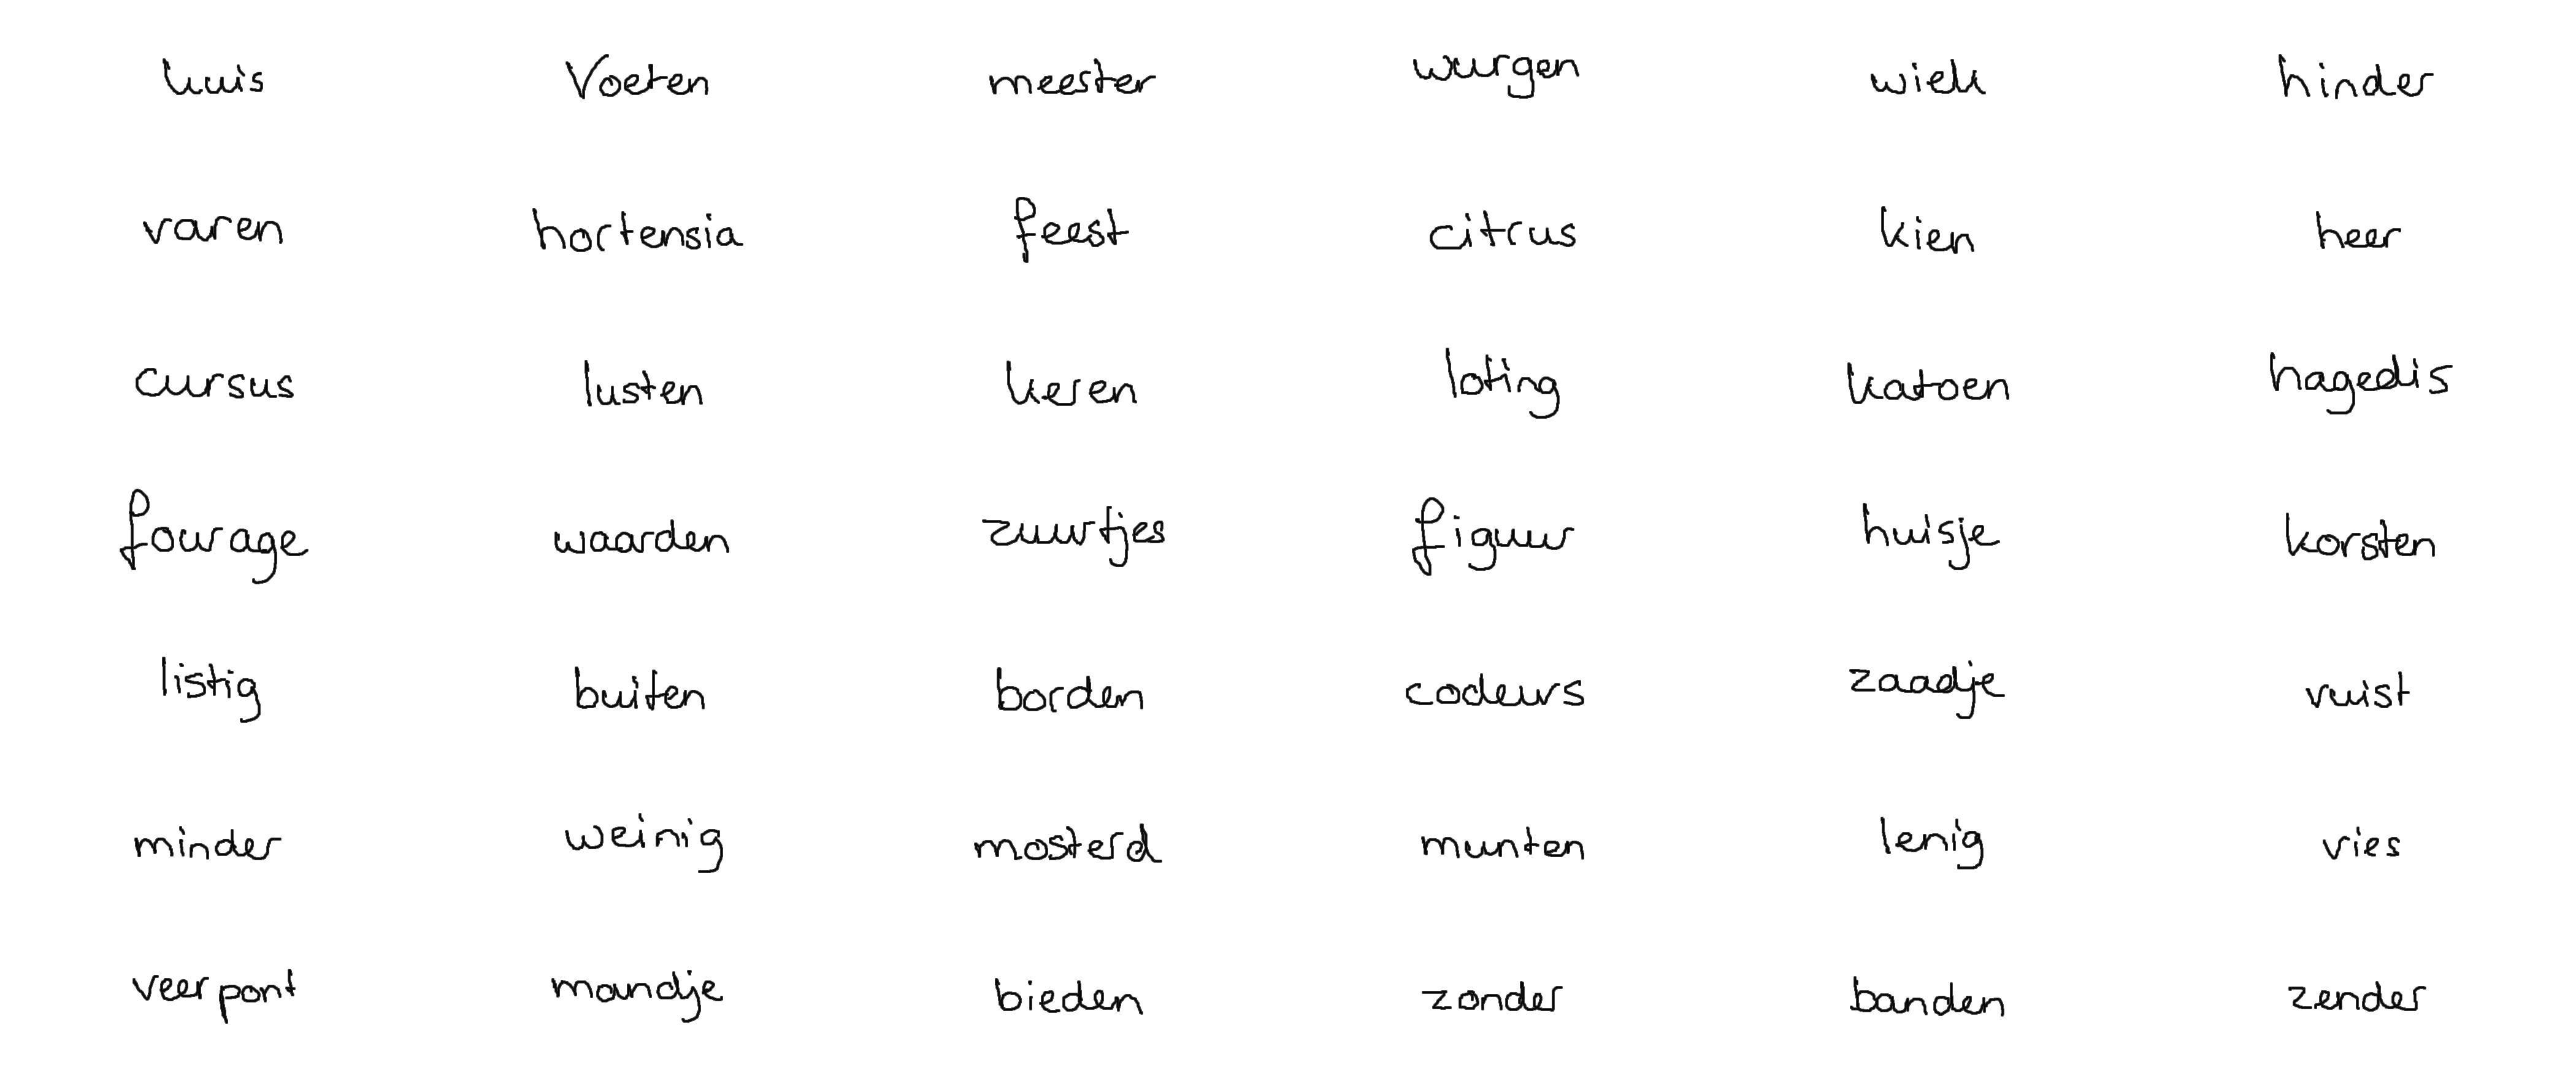 kuis Voeten meester wurgen wiek hinder
varen hortensia feest citrus kien heer
cursus lusten keren loting katoen hagedis
fourage waarden zuurtjes figuur huisje korsten
listig buiten borden codeurs zaadje vuist
minder weinig mosterd munten lenig vies
veerpont mandje bieden zonder banden zender